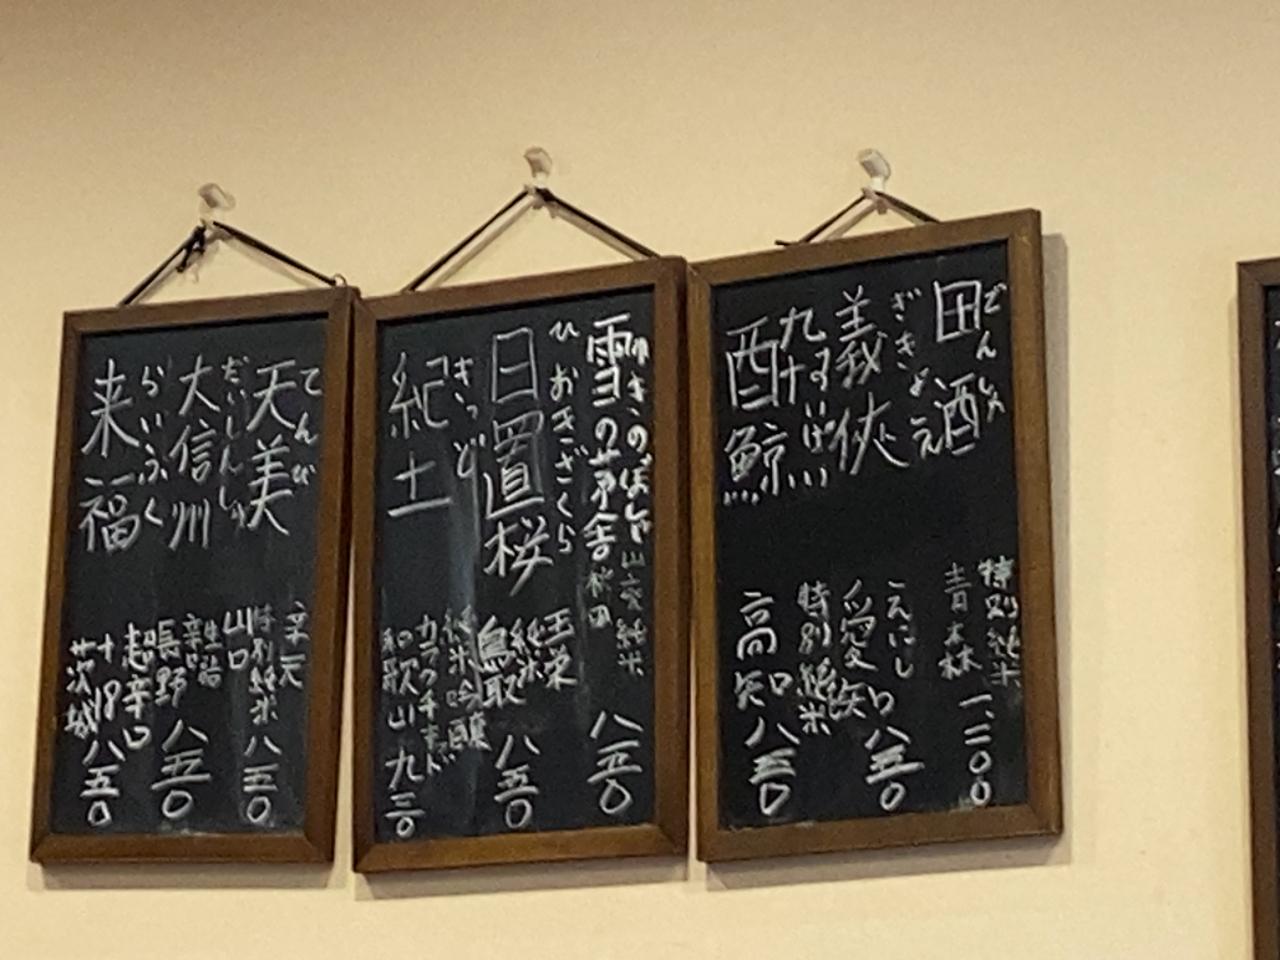 でんしゅ
田酒
特別純米
青森
一、二〇〇
ぎきょう
義侠
えにし
愛知
八五〇
すいげい
酔鯨
特別純米
高知
八五〇
ゆきのぼうしゃ
雪の茅舎
山廃純米
秋田
八五〇
ひおきざくら
日置桜
玉栄
純米
鳥取
八五〇
きっど
紀土
純米吟醸
カラクチキッド
和歌山
九三〇
てんび
天美
辛口
特別純米
山口
八五〇
だいしんしゅう
大信州
辛口
長野
八五〇
らいふく
来福
超辛口
十18
茨城
八五〇